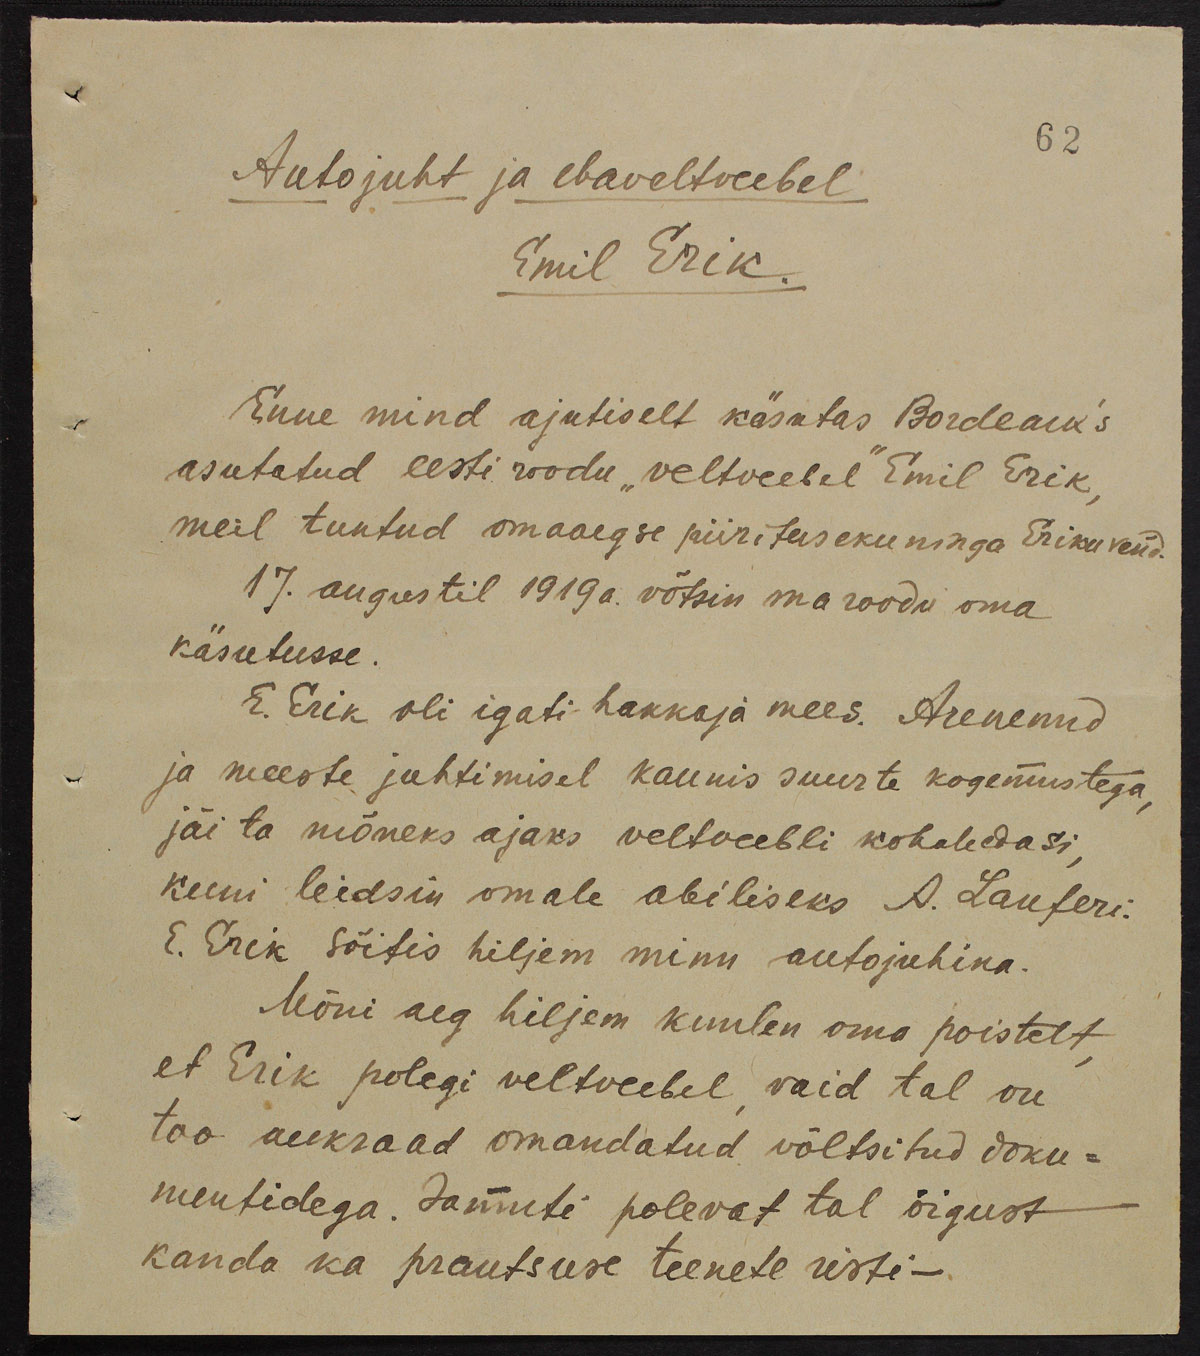 62
Autojuht ja ebaveltveebel
Emil Erik.
Enne mind ajutiselt käsutas Bordeaux's
asutatud eesti roodu „veltveebel" Emil Erik,
meil tuntud omaaegse piiritusekuninga Eriku vend.
17. augustil 1919a. võtsin ma roodu oma
käsutusse.
E. Erik oli igati hakkaja mees. Arenenud
ja meeste juhtimisel kaunis suurte kogem̅ustega,
jäi ta mõneks ajaks veltveebli kohale edasi,
kuni leidsin omale abiliseks A. Lauferi.
E. Erik sõitis hiljem minu autojuhina.
Mõni aeg hiljem kuulen oma poistelt,
et Erik polegi veltveebel, vaid tal on
too aukraad omandatud võltsitud doku=
mentidega. Sam̅uti polevat tal õigust
kanda ka prantsuse teenete risti —